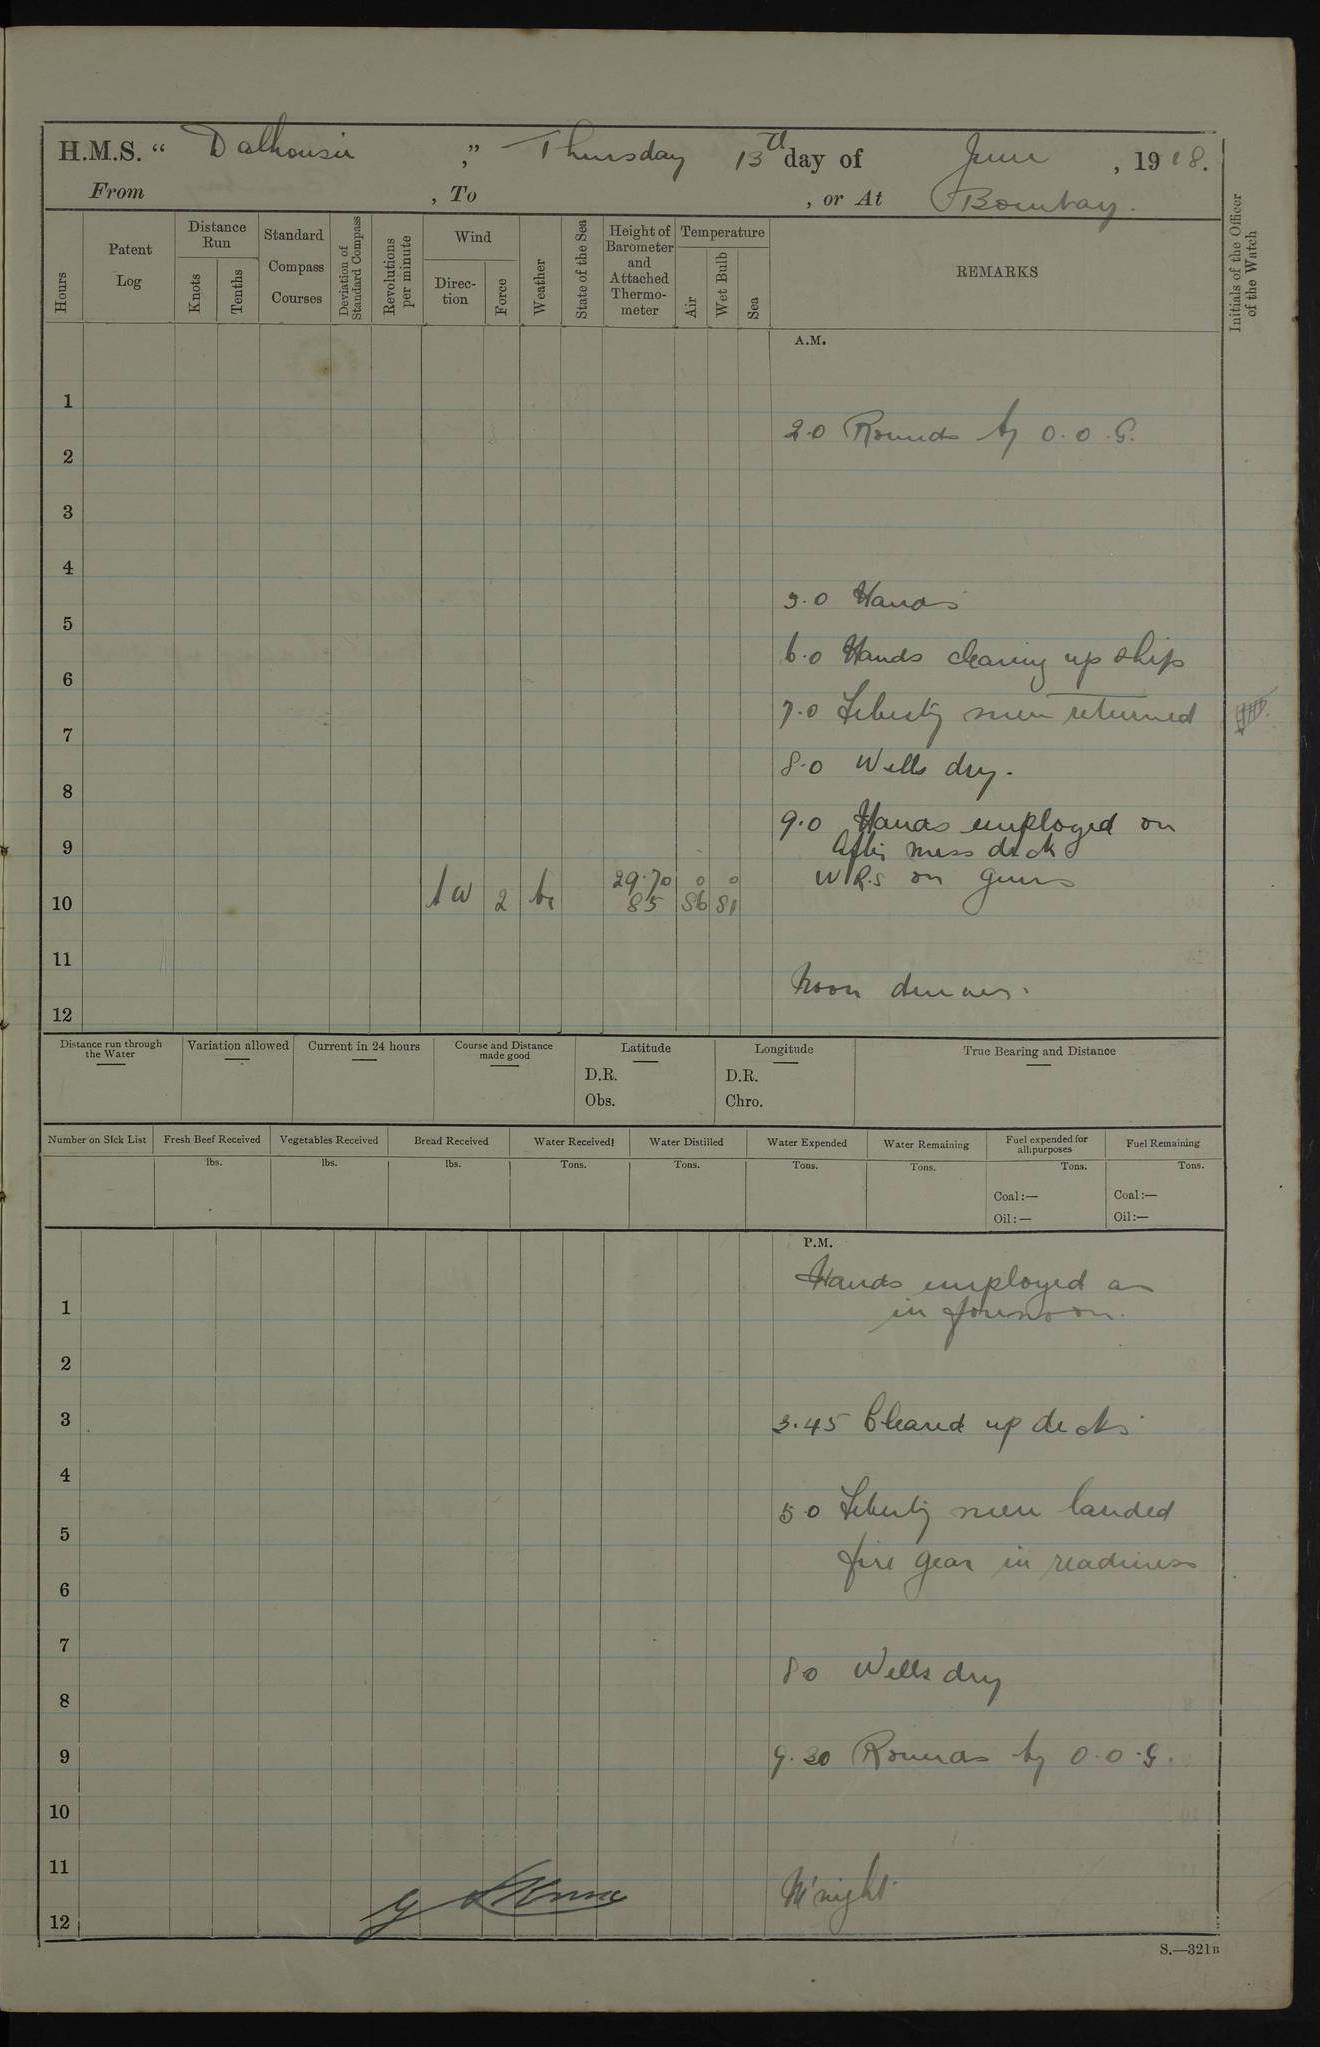 H.M.S. “ Dalhousie ,” Thursday 13th day of June , 1918.
From , To , or At Bombay.
Hours
Patent Log
Distance Run
Knots
Tenths
Standard Compass Courses
Deviation of Standard Compass
Revolutions per minute
Wind
Direction
Force
Weather
State of the Sea
Height of Barometer and Attached Thermometer
Temperature
Air
Wet Bulb
Sea
REMARKS
Initials of the Officer of the Watch
A.M.
1
2.0 Rounds by O.O.G.
2
3
4
5.0 Hands
5
6.0 Hands cleaning up ship
6
7.0 Liberty men returned
7
8.0 Wells dry.
8
9.0 Hands employed on
9 After mess deck
29.70 ° ° W.R.S on guns
10 W 2 bc 85 86 81
11
Noon dinner.
12
Distance run through the Water
Variation allowed
Current in 24 hours
Course and Distance made good
Latitude
D.R.
Obs.
Longitude
D.R.
Chro.
True Bearing and Distance
Number on Sick List
Fresh Beef Received
lbs.
Vegetables Received
lbs.
Bread Received
lbs.
Water Received
Tons.
Water Distilled
Tons.
Water Expended
Tons.
Water Remaining
Tons.
Fuel expended for all purposes
Tons.
Coal:—
Oil:—
Fuel Remaining
Tons.
Coal:—
Oil:—
P.M.
Hands employed as
1 in forenoon.
2
3 3.45 Cleared up decks
4
5.0 Liberty men landed
5
fire gear in readiness
6
7
8.0 Wells dry
8
9 9.30 Rounds by O.O.G.
10
11
M'night
12
S.—321B